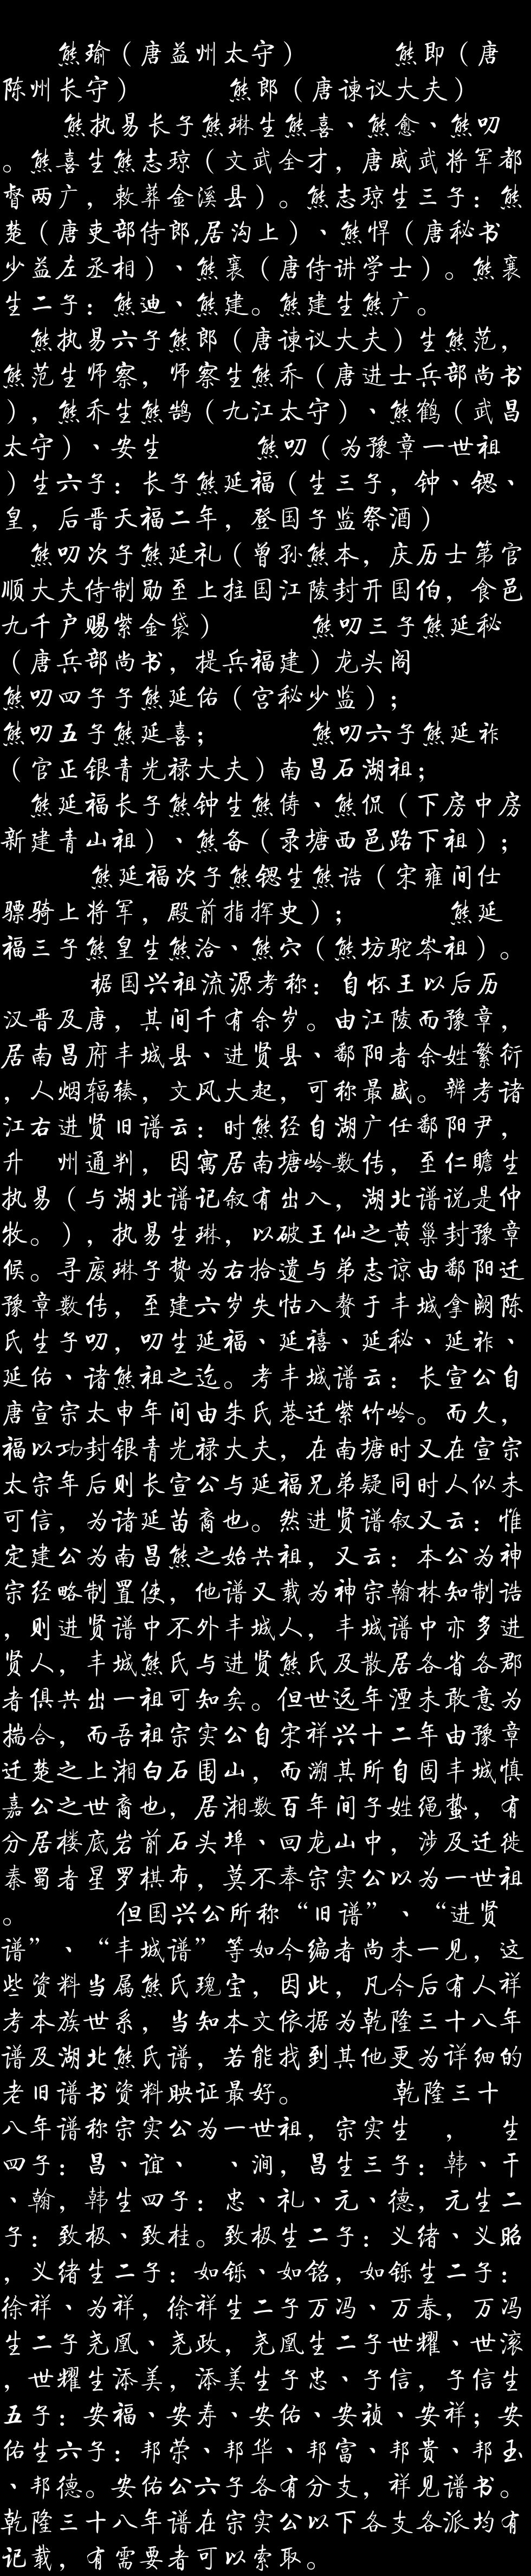 熊瑜（唐益州太守） 熊即（唐
陈州长守） 熊郎（唐谏议大夫）
熊执易长子熊琳生熊喜、熊愈、熊叨
。熊喜生熊志琼（文武全才，唐威武将军都
督两广，敕葬金溪县）。熊志琼生三子：熊
楚（唐吏部侍郎,居沟上）、熊悍（唐秘书
少益左丞相）、熊襄（唐侍讲学士）。熊襄
生二子：熊迪、熊建。熊建生熊广。
熊执易六子熊郎（唐谏议大夫）生熊范，
熊范生师察，师察生熊乔（唐进士兵部尚书
），熊乔生熊鹄（九江太守）、熊鹤（武昌
太守）、安生 熊叨（为豫章一世祖
）生六子：长子熊延福（生三子，钟、锶、
皇，后晋天福二年，登国子监祭酒）
熊叨次子熊延礼（曾孙熊本，庆历士第官
顺大夫侍制勋至上拄国江陵封开国伯，食邑
九千户赐紫金袋） 熊叨三子熊延秘
（唐兵部尚书，提兵福建）龙头阁
熊叨四子子熊延佑（宫秘少监）；
熊叨五子熊延喜； 熊叨六子熊延祚
（官正银青光禄大夫）南昌石湖祖；
熊延福长子熊钟生熊俦、熊侃（下房中房
新建青山祖）、熊备（录塘西邑路下祖）；
熊延福次子熊锶生熊诰（宋雍间仕
骠骑上将军，殿前指挥史）； 熊延
福三子熊皇生熊洽、熊穴（熊坊驼岑祖）。
椐国兴祖流源考称：自怀王以后历
汉晋及唐，其间千有余岁。由江陵而豫章，
居南昌府丰城县、进贤县、鄱阳者余姓繁衍
，人烟辐辏，文风大起，可称最盛。辨考诸
江右进贤旧谱云：时熊经自湖广任鄱阳尹，
升 州通判，因寓居南塘岭数传，至仁瞻生
执易（与湖北谱记叙有出入，湖北谱说是仲
牧。），执易生琳，以破王仙之黄巢封豫章
候。寻废琳子贽为右拾遗与弟志谅由鄱阳迁
豫章数传，至建六岁失怙入赘于丰城拿阙陈
氏生子叨，叨生延福、延禧、延秘、延祚、
延佑、诸熊祖之迄。考丰城谱云：长宣公自
唐宣宗太申年间由朱氏巷迁紫竹岭。而久，
福以功封银青光禄大夫，在南塘时又在宣宗
太宗年后则长宣公与延福兄弟疑同时人似未
可信，为诸延苗裔也。然进贤谱叙又云：惟
定建公为南昌熊之始共祖，又云：本公为神
宗经略制置使，他谱又载为神宗翰林知制诰
，则进贤谱中不外丰城人，丰城谱中亦多进
贤人，丰城熊氏与进贤熊氏及散居各省各郡
者俱共出一祖可知矣。但世远年湮未敢意为
揣合，而吾祖宗实公自宋祥兴十二年由豫章
迁楚之上湘白石围山，而溯其所自固丰城慎
嘉公之世裔也，居湘数百年间子姓绳蛰，有
分居楼底岩前石头埠、回龙山中，涉及迁徙
秦蜀者星罗棋布，莫不奉宗实公以为一世祖
。 但国兴公所称“旧谱”、“进贤
谱”、“丰城谱”等如今编者尚未一见，这
些资料当属熊氏瑰宝，因此，凡今后有人祥
考本族世系，当知本文依据为乾隆三十八年
谱及湖北熊氏谱，若能找到其他更为详细的
老旧谱书资料映证最好。 乾隆三十
八年谱称宗实公为一世祖，宗实生 ， 生
四子：昌、谊、 、涧，昌生三子：韩、干
、翰，韩生四子：忠、礼、元、德，元生二
子：致极、致桂。致极生二子：义绪、义昭
，义绪生二子：如铄、如铭，如铄生二子：
徐祥、为祥，徐祥生二子万冯、万春，万冯
生二子尧凰、尧政，尧凰生二子世耀、世滚
，世耀生添美，添美生子忠、子信，子信生
五子：安福、安寿、安佑、安祯、安祥；安
佑生六子：邦荣、邦华、邦富、邦贵、邦玉
、邦德。安佑公六子各有分支，祥见谱书。
乾隆三十八年谱在宗实公以下各支各派均有
记载，有需要者可以索取。